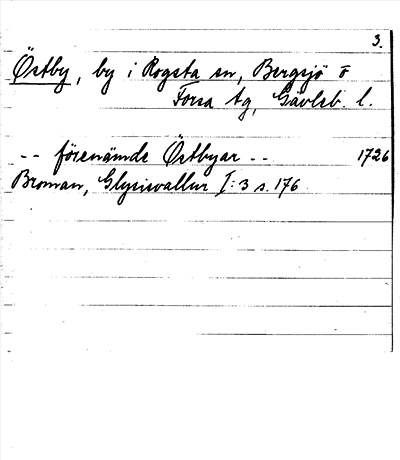 3.
Östby, by i Rogsta sn, Bergsjö o
Forsa tg, Gävleb. l.
-- förenämde Östbyar -- 1726
Broman, Glysisvallur I:3 s. 176.